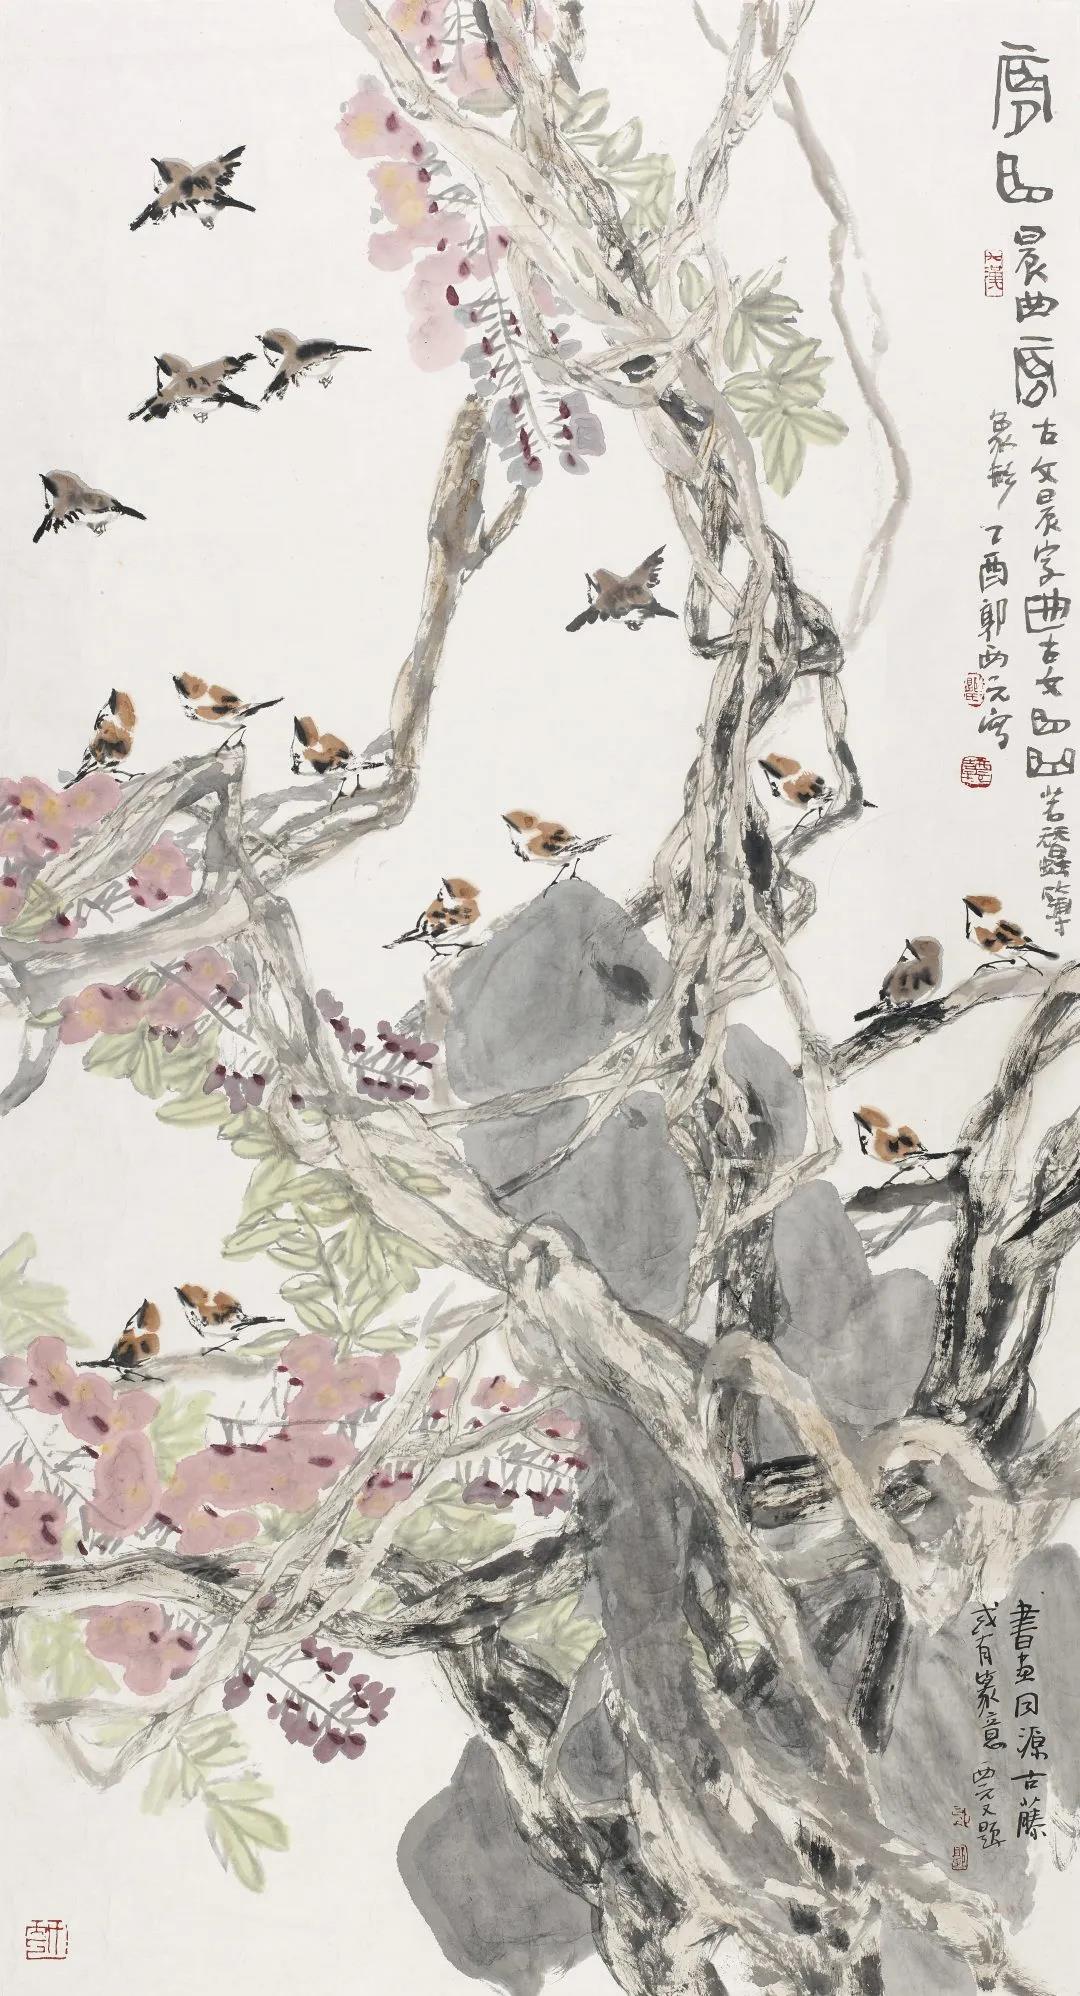 晨曲古文晨字曲古文若蠶簿
象形 丁酉郭西元寫
書画同源古藤
或有篆意 西元又題